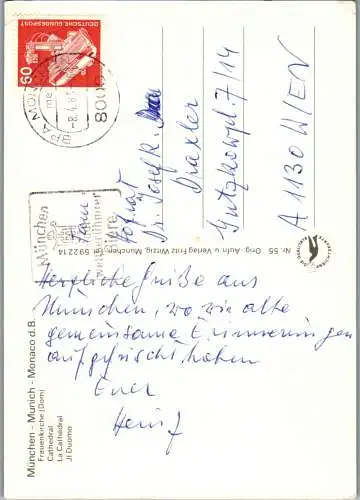 DEUTSCHE BUNDESPOST
60
-8.-4.8
8000
München
weltberühmt
Biere
Fam.
Hofrat
Dr. Josef R.
Draxler
Gutzkowpl. 7/14
A 1130 WIEN
Nr. 55 Orig.-Aufn. u. Verlag Fritz Witzig, München, Tel. 592214
Herzliche Grüße aus
München, wo wir alte
gemeinsame Erinnerungen
aufgefrischt haben
Euer
München - Munich - Monaco d. B.
Frauenkirche (Dom)
Cathedral
La Cathédral
Jl Duomo